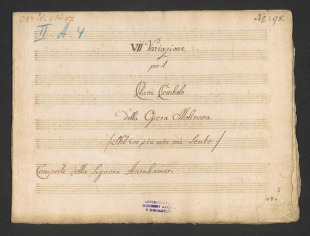 II. A. 4
VII Variazione
per il
Clavi Cembalo
della Opera Molinara
Nel Cor più non mi sento
Composte dalla Signora Aurnhamer